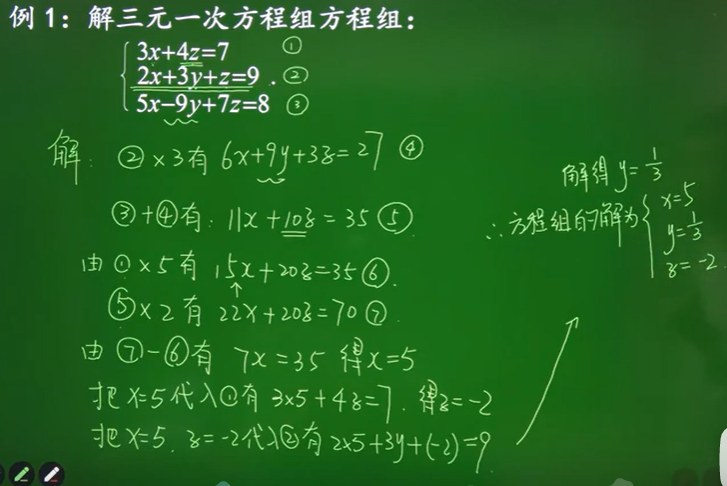 例 1：解三元一次方程组方程组：
3x+4z=7 ①
2x+3y+z=9 . ②
5x−9y+7z=8 ③
解: ②×3有 6x+9y+3z=27 ④
③+④有: 11x+10z=35 ⑤
由①×5有 15x+20z=35 ⑥.
⑤×2有 22x+20z=70 ⑦.
由⑦−⑥有 7x=35 得x=5
把x=5代入①有 3×5+4z=7. 得z=-2
把x=5. z=-2代入②有 2×5+3y+(-2)=9
解得 y=1/3
∴方程组的解为 { x=5
y=1/3
z=-2.